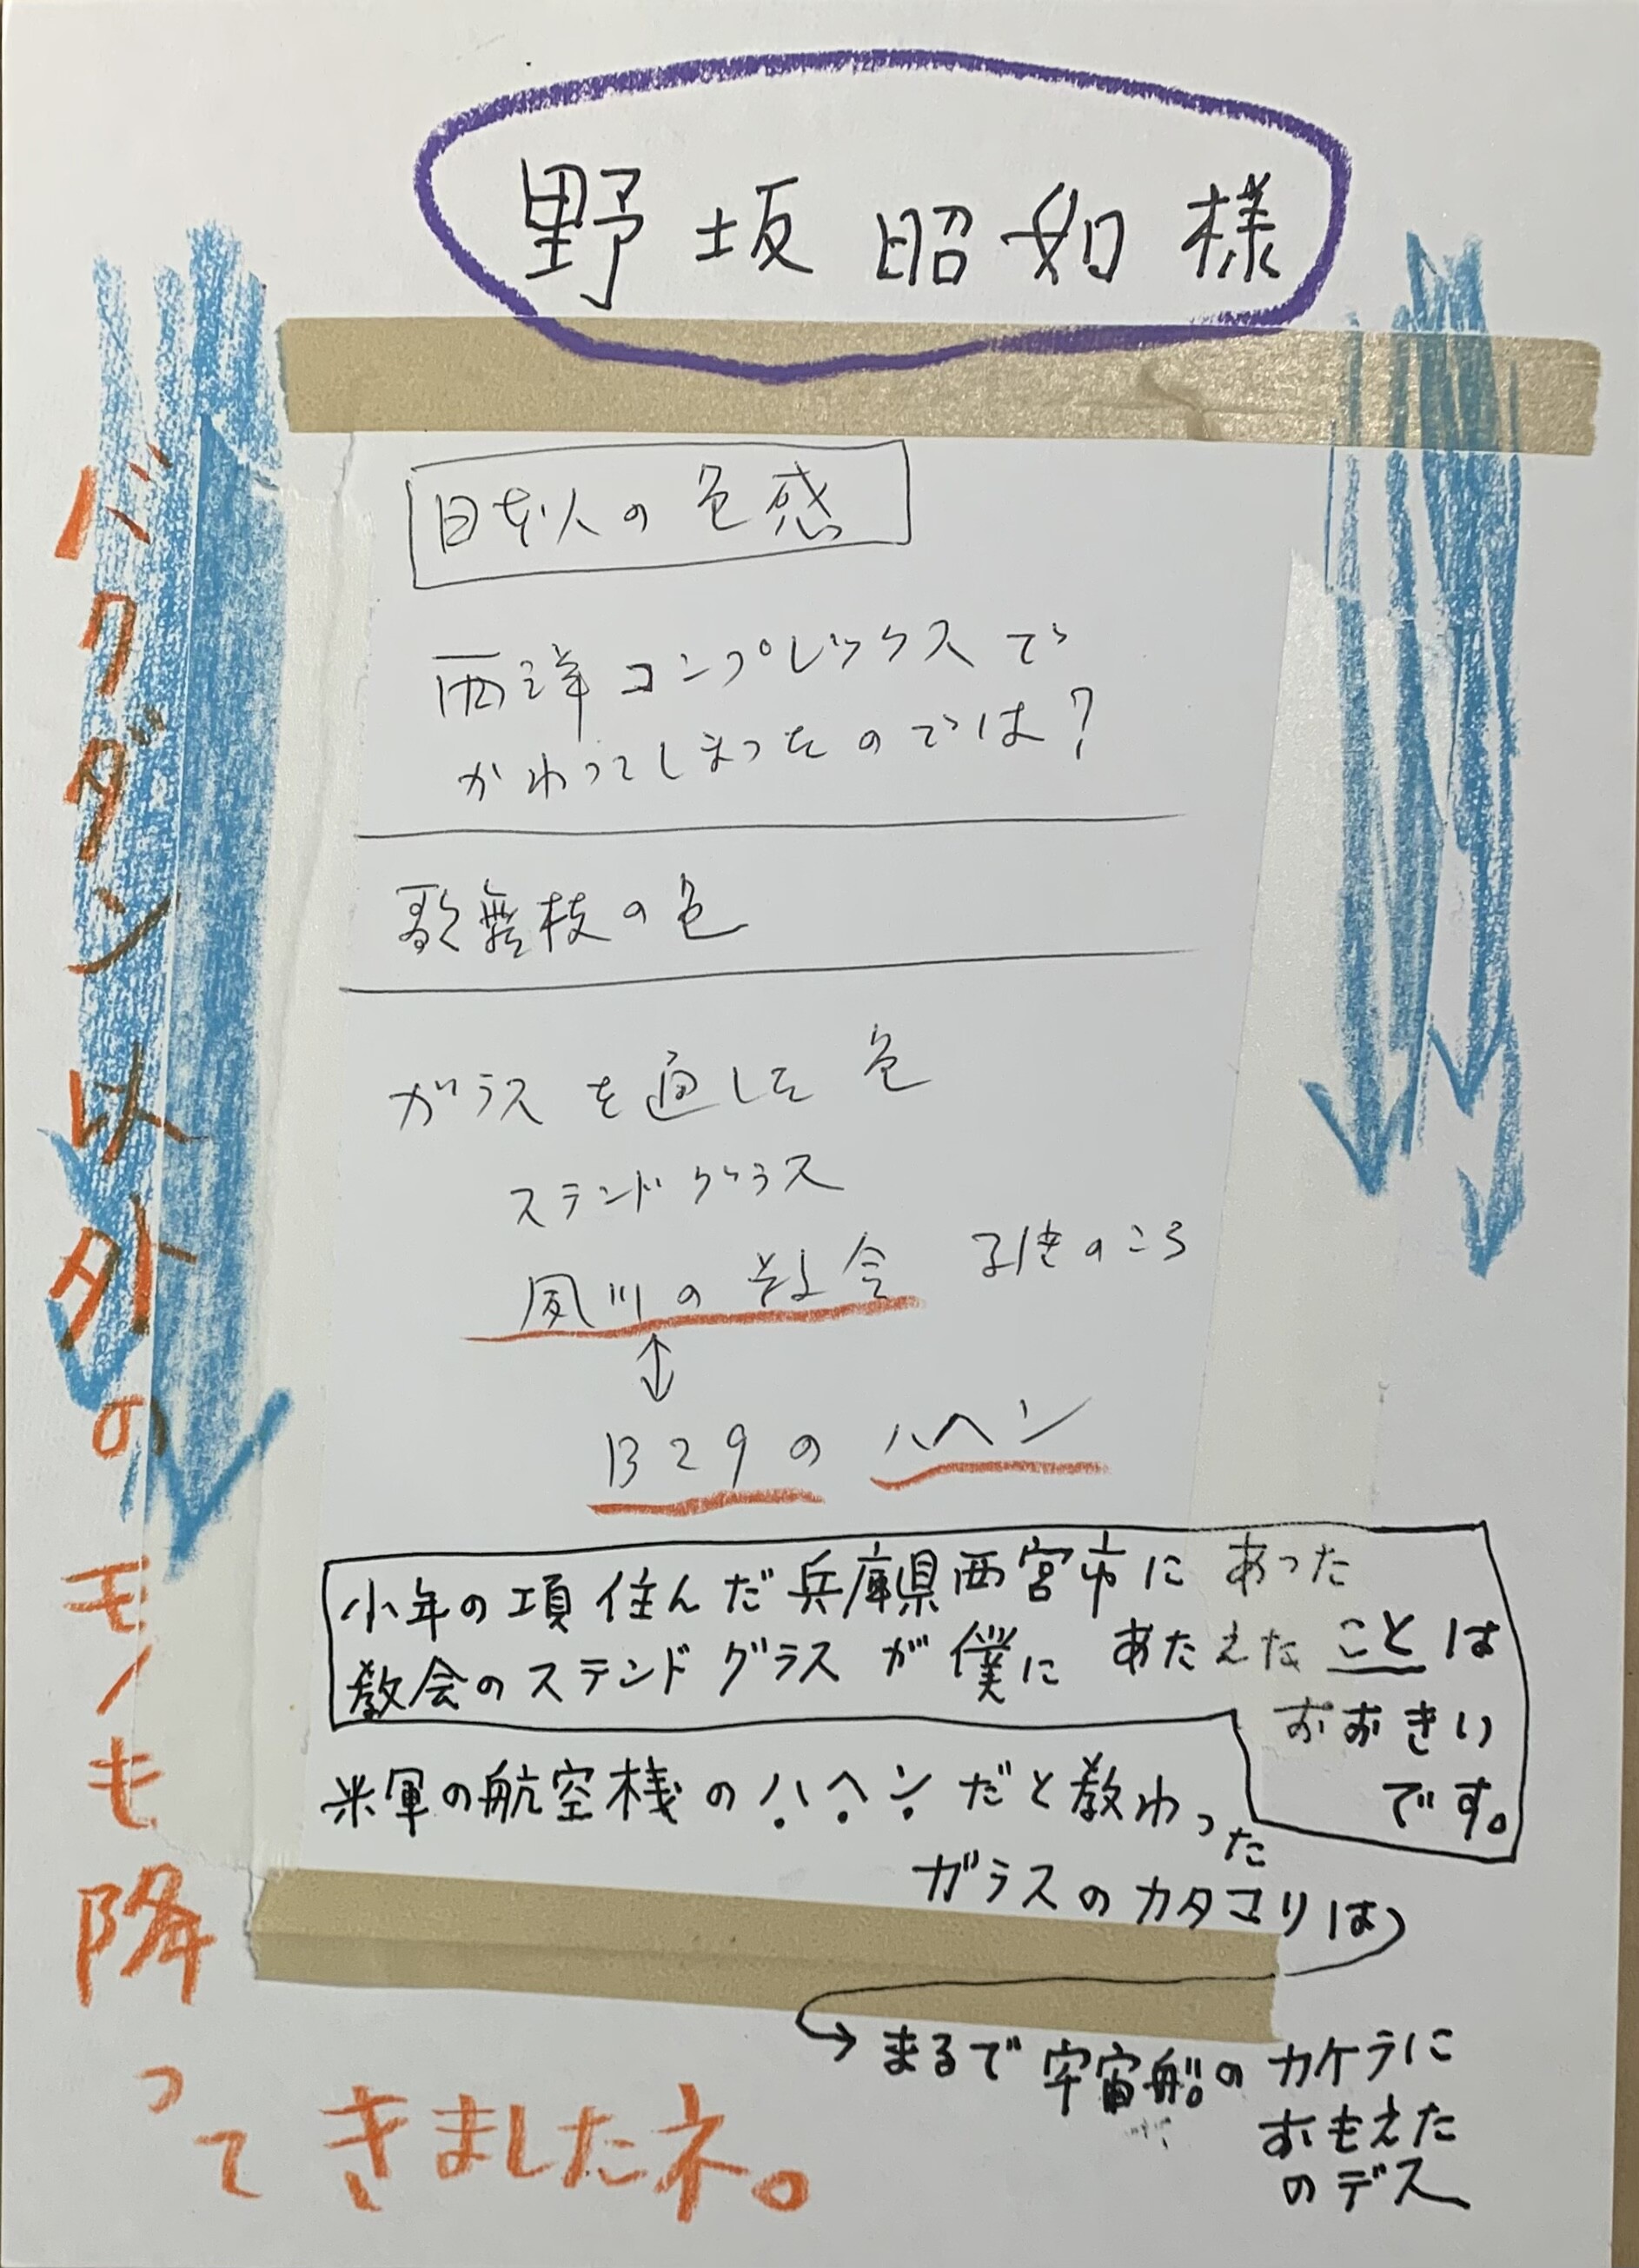 野坂昭如様
日本人の色感
西洋コンプレックスで
かわってしまったのでは?
歌舞伎の色
ガラスを通した色
ステンドグラス
夙川の教会 引きのころ
B29のハヘン
少年の項住んだ兵庫県西宮市にあった
教会のステンドグラスが僕にあたえたことは
おおきい
です。
米軍の航空機のハヘンだと教わった
ガラスのカタマリは
→まるで宇宙船のカケラに
おもえた
のデス
バクダン以外のモノも降ってきましたネ。